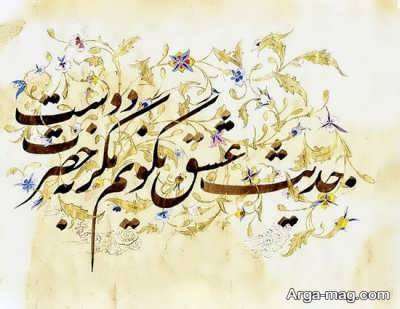 حدیث عشق نگویم مگر به حضرت دوست
Arga-mag.com